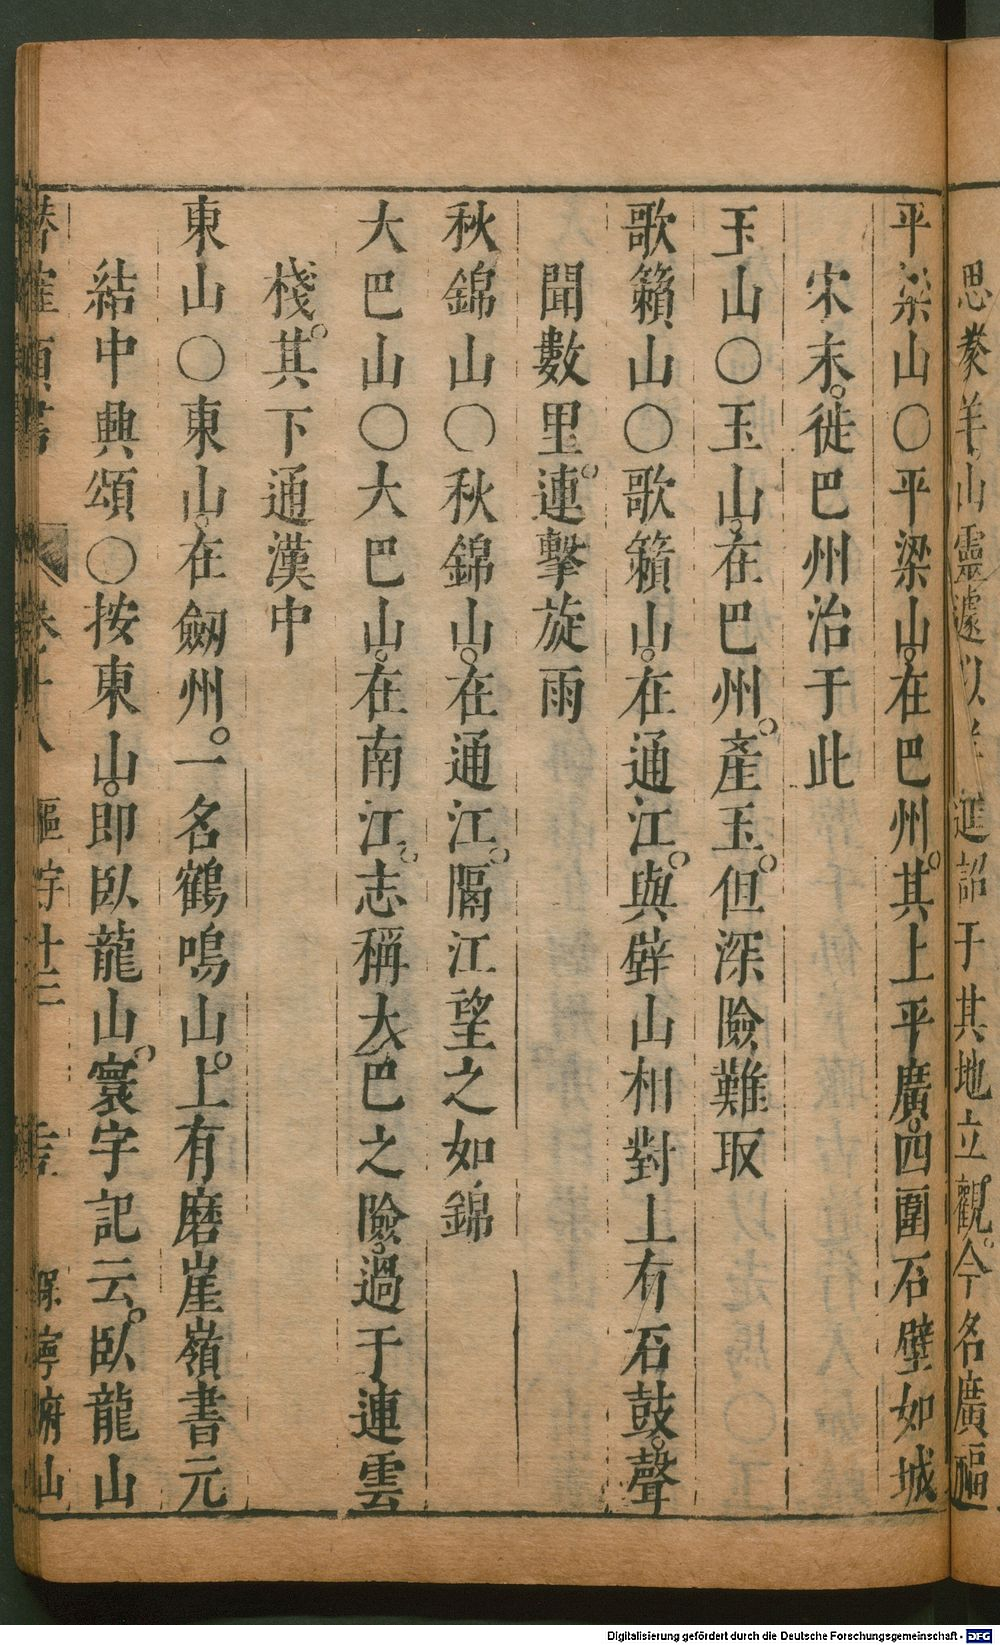 思蒙羊山靈遽以 進詔于其地立觀。今名廣福
平梁山○平梁山。在巴州。其上平廣。四圍石壁如城
宋末。徙巴州治于此
玉山○玉山。在巴州。產玉。但深險難取
歌籟山○歌籟山。在通江。與壁山相對上有石鼓。聲
聞數里。連擊旋雨
秋錦山○秋錦山。在通江。隔江望之如錦
大巴山○大巴山。在南江。志稱大巴之險。過于連雲
棧。其下通漢中
東山○東山。在劒州。一名鶴鳴山。上有磨崖嶺書元
結中興頌○按東山。即臥龍山。寰宇記云。臥龍山
潛確類書 卷十八 區宇十三 保寧府山
Digitalisierung gefördert durch die Deutsche Forschungsgemeinschaft - DFG